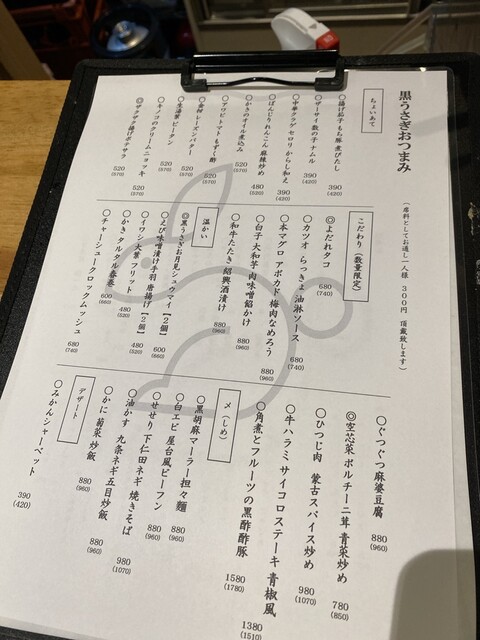 黒うさぎおつまみ
(席料としてお通し一人様 300円 頂戴致します)
ちょいあて
○揚げ茄子 もち豚 煮びたし 390 (420)
○ザーサイ 数の子 ナムル 390 (420)
○中華クラゲ セロリ からし和え 390 (420)
○ばんじり れんこん 麻辣炒め 480 (520)
○かきのオイル煮込み 520 (570)
○アワビトマト もずく酢 520 (570)
○金柑 レーズンバター 520 (570)
○生湯葉 ピータン 520 (570)
○キノコのクリームニョッキ 520 (570)
◎サクサク揚げポテサラ 520 (570)
こだわり (数量限定)
◎よだれタコ 680 (740)
○カツオ らっきょ 油淋ソース 680 (740)
○本マグロ アボカド 梅肉なめろう 880 (960)
○白子 大和芋 肉味噌餡かけ 880 (960)
○和牛たたき 紹興酒漬け 880 (960)
温かい
◎黒うさぎお月見シュウマイ【2個】 600 (660)
○えび味噌漬け手羽 唐揚げ【2個】 480 (520)
○イワシ大葉 フリット 480 (520)
○かき タルタル春巻 600 (660)
○チャーシュークロックムッシュ 680 (740)
○ぐつぐつ麻婆豆腐 880 (960)
◎空芯菜 ポルチーニ茸 青菜炒め 780 (850)
○ひつじ肉 蒙古スパイス炒め 980 (1070)
○牛ハラミ サイコロステーキ 青椒風 1380 (1510)
○角煮とフルーツの黒酢酢豚 1580 (1780)
〆(しめ)
○黒胡麻マーラー担々麺 880 (960)
○白エビ 屋台風ビーフン 880 (960)
○せせり 下仁田ネギ 焼きそば 980 (1070)
○油かす 九条ネギ五目炒飯 880 (960)
○かに 菊菜 炒飯
デザート
○みかんシャーベット 390 (420)